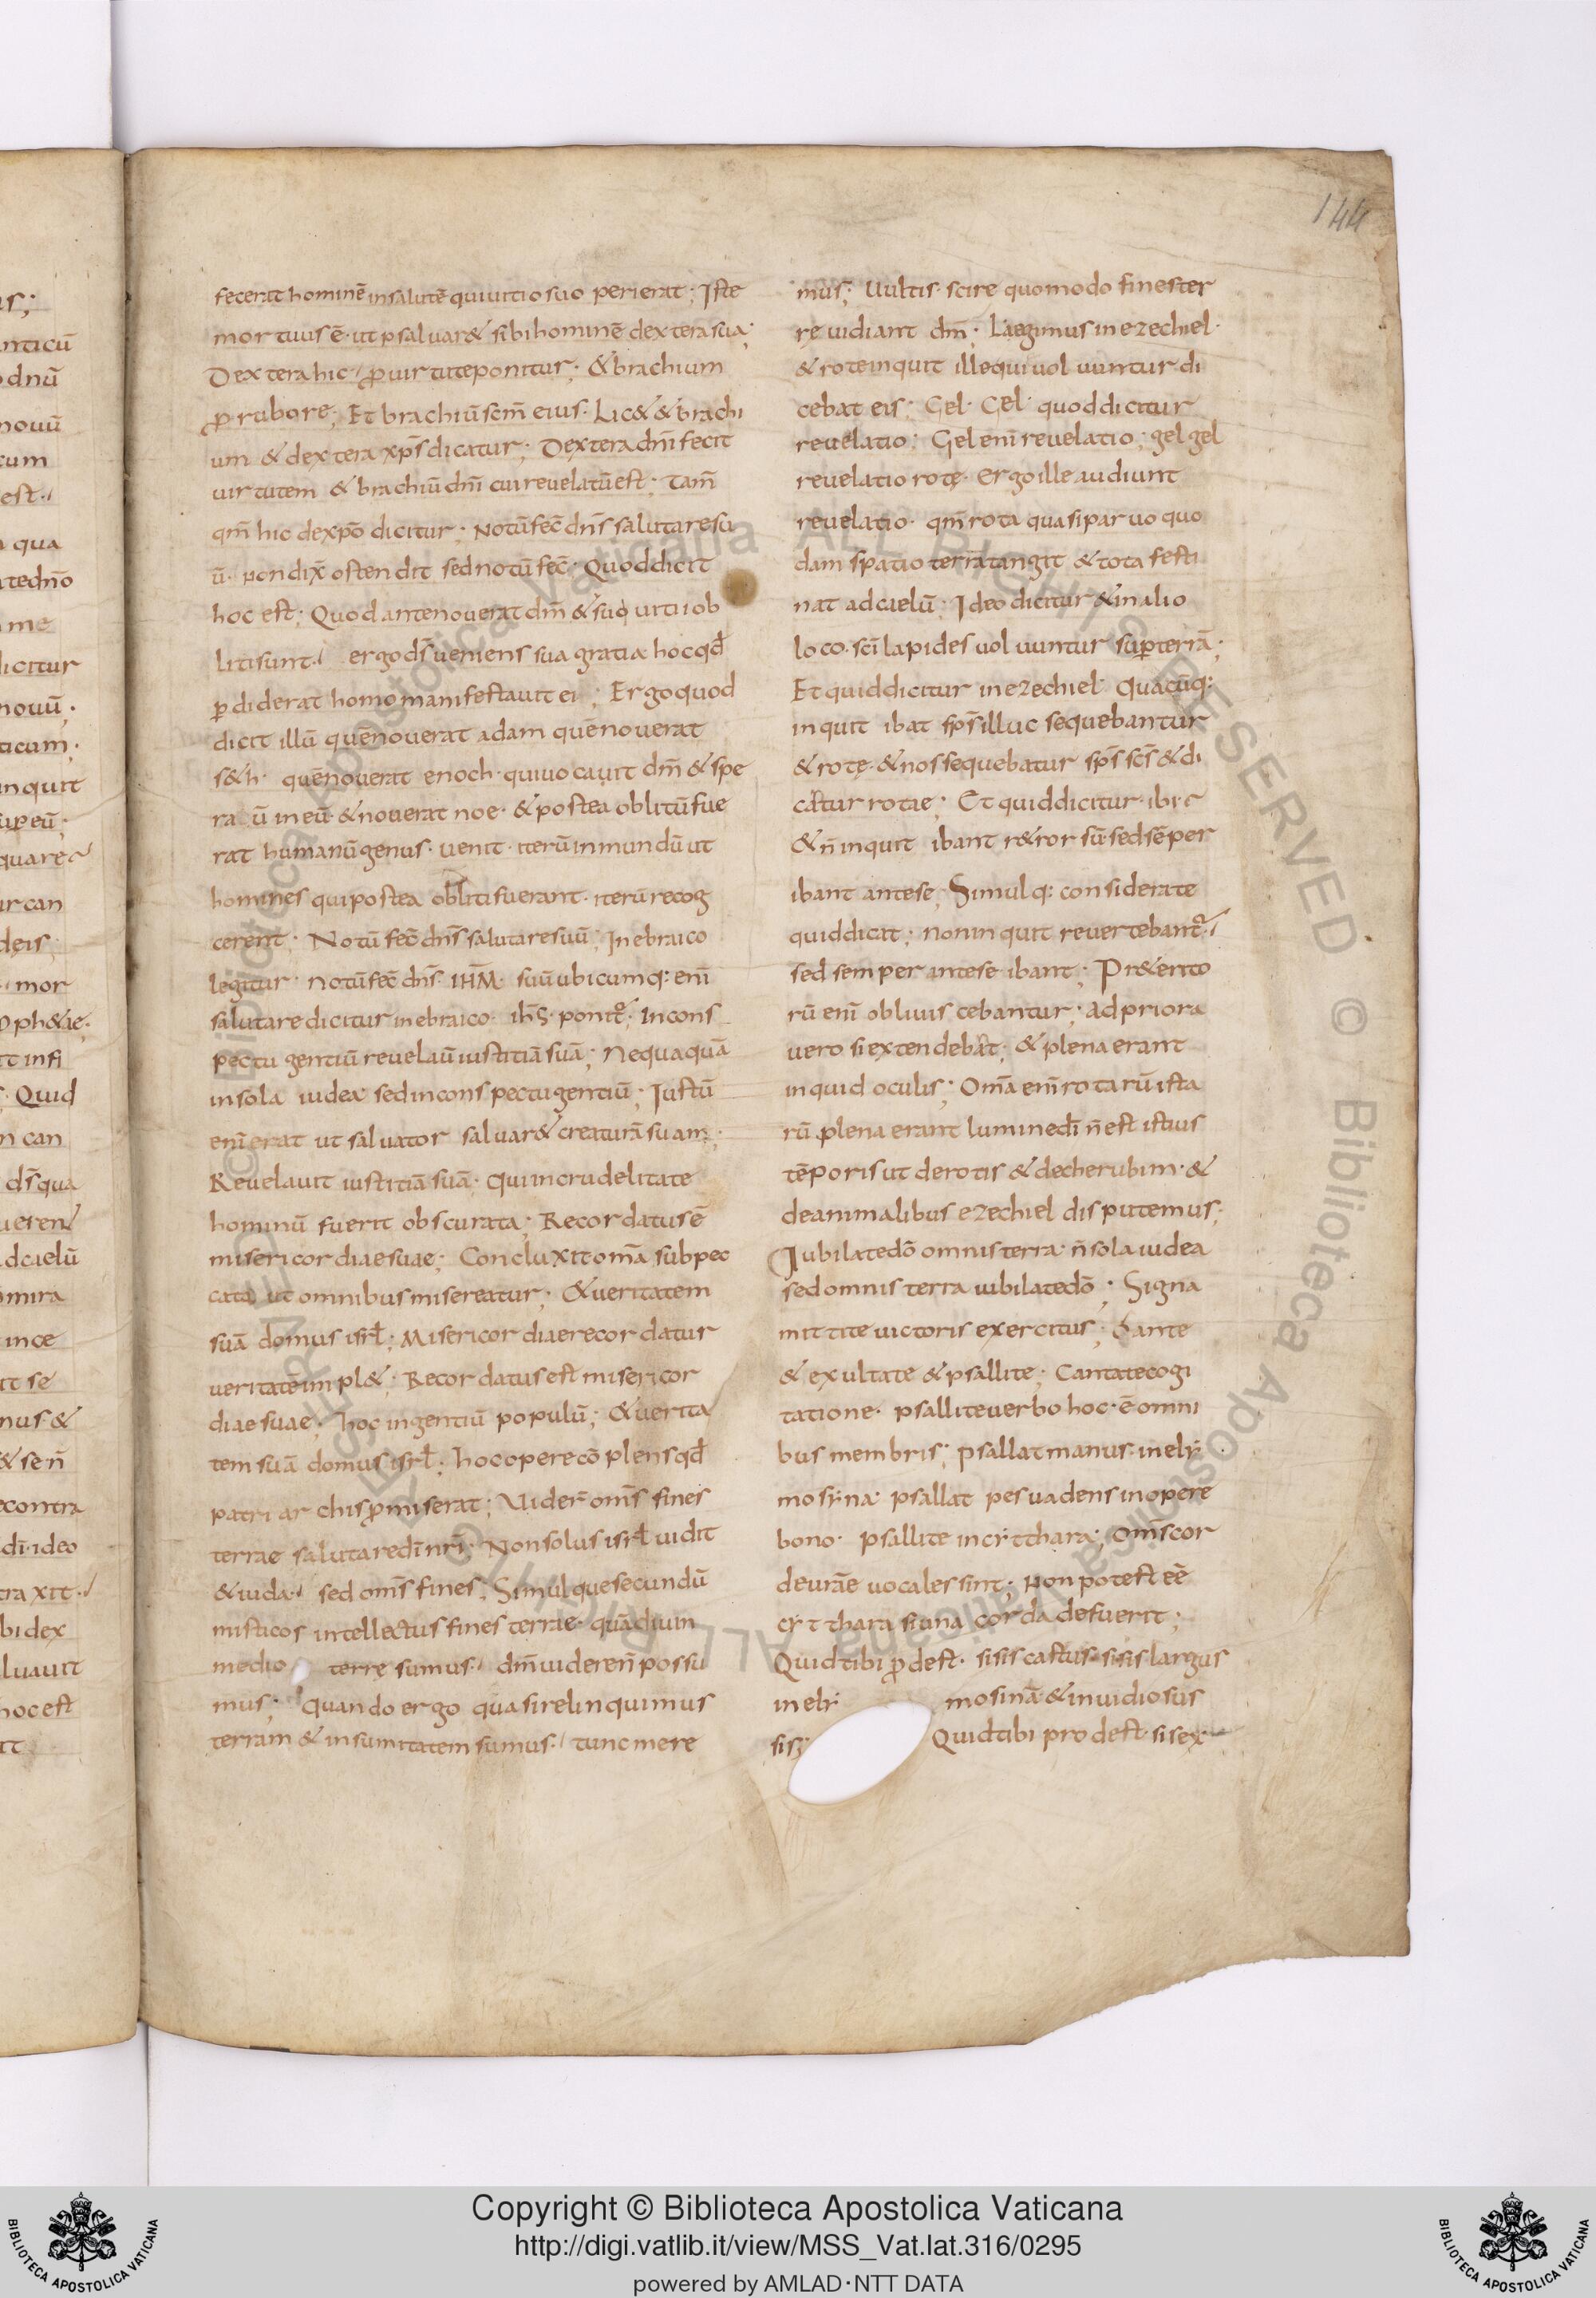 144
fecerit hominē in salutē qui uitio suo perierat; Iste
mortuus ē· ut psaluar& sibi hominē dextera sua;
Dextera hic ꝓ uirtute ponitur; & brachium
ꝓ rubore; Et brachiū scm̄ eius· Lic& & brachi
um & dextera xp̄s dicatur; Dextera dn̄i fecit
uirtutem & brachiū dn̄i cui reuelatū est; Tam̄
qm̄ hic de xpō dicitur; Notū fec̄ dn̄s salutare su
ū· Non dix̄ ostendit sed notū fec̄· Quod dicit
hoc est; Quod ante nouerat dm̄ & suo uitii ob
liti sunt·/ ergo ds̄ ueniens sua gratia hoc qd̄
ꝑdiderat homo manifestauit ei; Ergo quod
dicit illū quē nouerat adam quē nouerat
s&h· quē nouerat enoch· qui uocauit dm̄ & spe
ra ū in eū· & nouerat noe· & postea oblitū fue
rat humanū genus· uenit· iterū in mundū ut
homines qui postea obliti fuerant· iterū recog
cerent; Notū fec̄ dn̄s salutare suū; In ebraico
legitur· notū fec̄ dn̄s· IHM̄· suū ubicumq: eni̅
salutare dicitur in ebraico· ih̄s· ponit᷒; In cons
pectu gentiū reuelau̅ iustitiā suā; Nequaquā
in sola iudea sed in conspectu gentiū; Iustū
eni̅ erat ut saluator saluar& creaturā suam;
Reuelauit iustitiā suā· Qui in crudelitate
hominū fuerit obscurata; Recordatus ē
misericordiae suae; Conclu xit om̄a sub pec
cata ut omnibus misereatur; & ueritatem
suā domus isrł; Misericordiae recordatur
ueritatē impl&; Recordatus est misericor
diae suae; hoc in gentiū populū; & uerita
tem suā domus isrł; hoc opere cō plens qd̄
patriarchis ꝓmiserat; Uider̄ om̄s fines
terrae salutare dī nr̄i· Non solus isrł uidit
& iuda·/ sed om̄s fines; Simulque secundū
misticos intellectus fines terrae· quādium
medio terrę sumus·/ dm̄ uidere n̄ possu
mus; Quando ergo quasi relinquimus
terram & in sumitatem sumus·/ tunc mere
mus; Uultis scire quomodo fines ter
rę uidiant dm̄; Laegimus in ezechiel·
& rote inquit ille qui uoluuntur· di
cebat eis; Gel· Gel· quod dicitur
reuelatio; Gel eni̅ reuelatio; gel gel
reuelatio rotę· Ergo ille audiunt
reuelatio· qm̄ rota quasi paruo quo
dam spatio terrā tangit & tota festi
nat ad caelū; Ideo dicitur & in alio
loco· sci̅ lapides uoluuntur suꝑ terrā;
Et quid dicitur in ezechiel Quacūq:
inquit ibat sp̄s illuc sequebantur
& rotę· & nos sequebatur sp̄s sc̄s & di
catur rotae; Et quid dicitur· ibi
& n̄ inquit ibant r&rorsū· sed sēper
ibant ante se; Simulq: considerate
quid dicat; Non inquit reuertebant᷒·/
sed semper ante se ibant; Pr&erito
rū eni̅ obliuis cebantur; ad priora
uero si extendebat; & plena erant
inquid oculis; Om̄a eni̅ rotarū ista
rū plena erant lumine dī n̄ est istius
tēporis ut de rotis & de cherubim· &
de animalibus ezechiel disputemus;
Iubilate dō omnis terra· n̄ sola iudea
sed omnis terra iubilate dō; Signa
mittite uictoris exercitus; Cante
& exultate & psallite; Cantate cogi
tatione· psallite uerbo hoc· ē omni
bus membris; psallat manus· in elẏ
mosẏna· psallat pes uadens in opere
bono· psallite in cẏtthara; Om̄s cor
de urāe uocales sint; Non potest eē
cẏtthara si una corda defuerit;
Quid tibi ꝓdest· si sis castus· si sis largus
in elẏ mosinā· & inuidiosus
sis; Quid tibi prodest· si sex
Copyright © Biblioteca Apostolica Vaticana
http://digi.vatlib.it/view/MSS_Vat.lat.316/0295
powered by AMLAD·NTT DATA